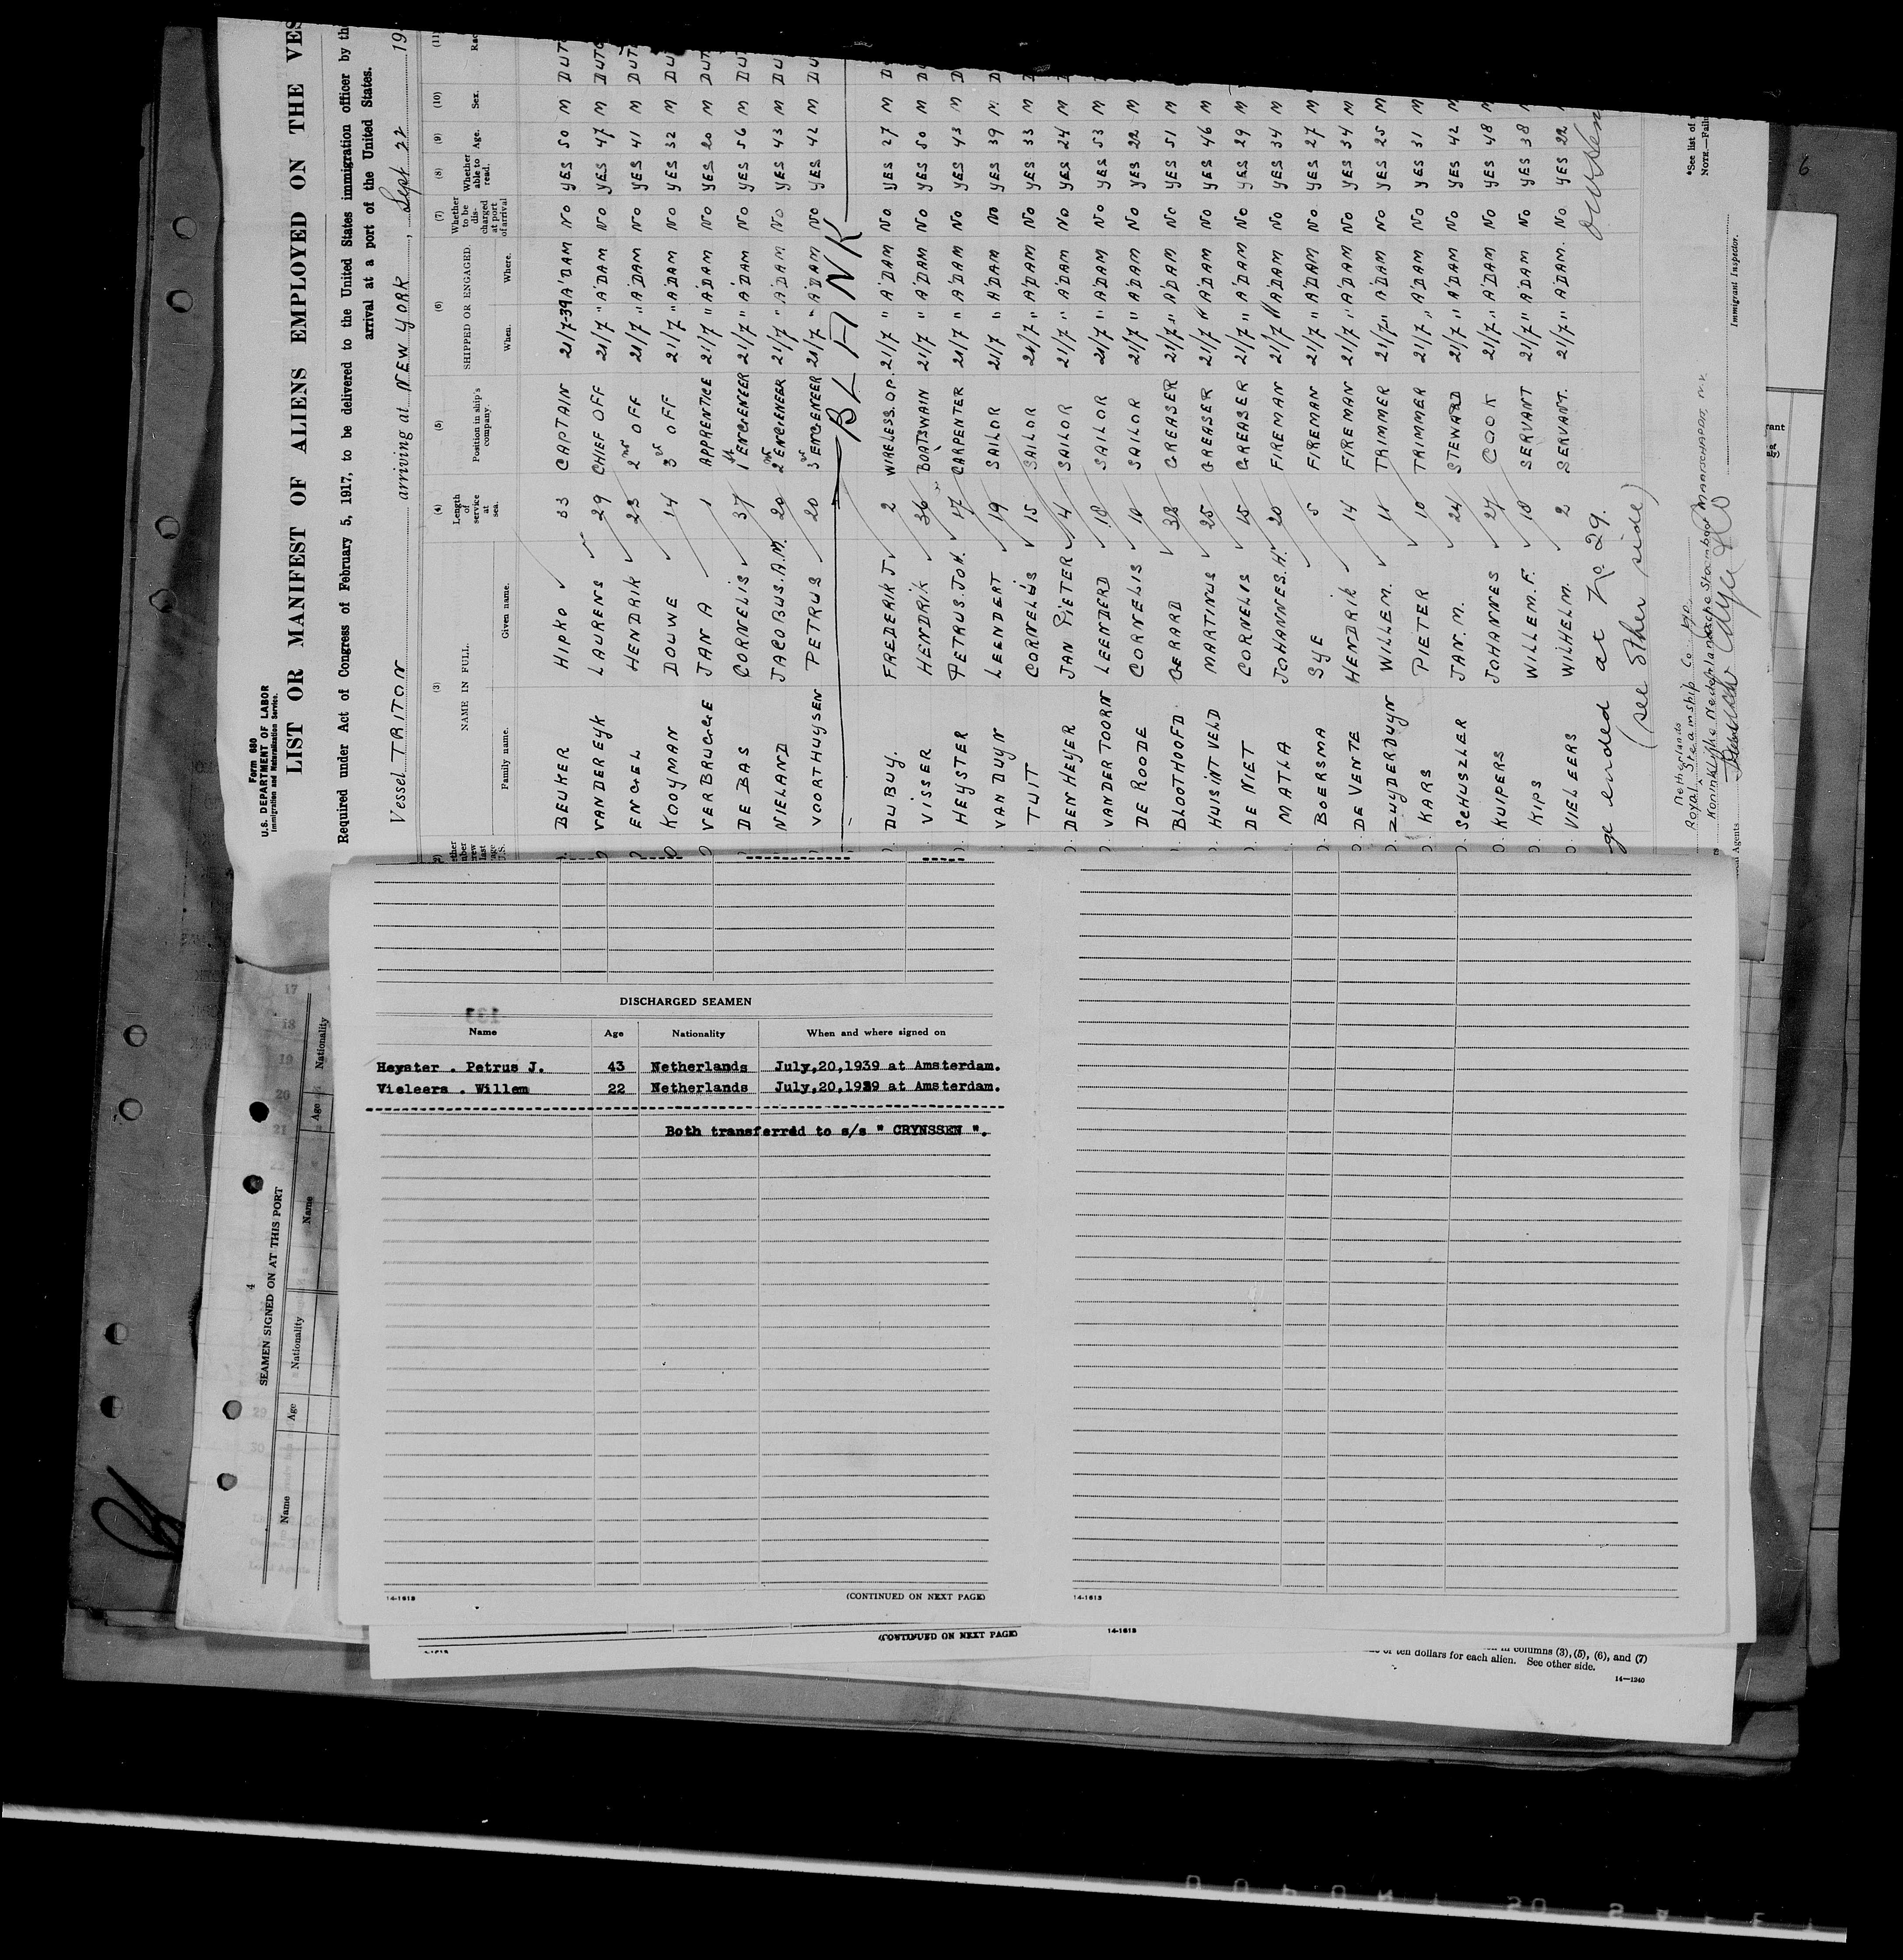 Form 680
U.S. DEPARTMENT OF LABOR
Immigration and Naturalization Service.
LIST OR MANIFEST OF ALIENS EMPLOYED ON THE VES
Required under Act of Congress of February 5, 1917, to be delivered to the United States immigration officer by the
arrival at a port of the United States.
Vessel TRITON arriving at NEW YORK, Sept 22 19
(3) (4) (5) (6) (7) (8) (9) (10) (11)
NAME IN FULL Length of service at sea. Position in ship's company. SHIPPED OR ENGAGED. Whether to be discharged at port of arrival Whether able to read. Age. Sex. Rac
Family name. Given name. When. Where.
BEUKER HIPKO 33 CAPTAIN 21/7-39 A'DAM NO YES 50 M DUTC
VANDEREYK LAURENS 29 CHIEF OFF 21/7 " A'DAM NO YES 47 M DUTC
ENGEL HENDRIK 23 2nd OFF 21/7 " A'DAM NO YES 41 M DUT
KOOYMAN DOUWE 14 3rd OFF 21/7 " A'DAM NO YES 32 M DU
VERBRUGGE JAN A 1 APPRENTICE 21/7 " A'DAM NO YES 20 M DUT
DE BAS CORNELIS 37 1st ENGENEER 21/7 " A'DAM NO YES 56 M DU
NIELAND JACOBUS.A.M. 20 2nd ENGENEER 21/7 " A'DAM NO YES 43 M DU
VOORTHUYSEN PETRUS 20 3rd ENGENEER 21/7 " A'DAM NO YES 42 M DU
BLANK
DUBUY. FREDERIK J 2 WIRELESS.OP. 21/7 " A'DAM NO YES 27 M D
VISSER HENDRIK 36 BOATSWAIN 21/7 " A'DAM NO YES 50 M D
HEYSTER PETRUS.JOH. 17 CARPENTER 21/7 " A'DAM NO YES 43 M D
VAN DUYN LEENDERT 19 SAILOR 21/7 " A'DAM NO YES 39 M D
TUIT CORNELIS 15 SAILOR 21/7 " A'DAM NO YES 33 M
DEN HEYER JAN PIETER 4 SAILOR 21/7 " A'DAM NO YES 24 M
VANDER TOORN LEENDERD SAILOR 21/7 " A'DAM NO YES 53 M
DE ROODE CORNELIS SAILOR 21/7 " A'DAM NO YES 22 M
BLOOTHOOFD GERARD GREASER 21/7 " A'DAM NO YES 51 M
HUIS INT VELD MARTINUS 25 GREASER 21/7 " A'DAM NO YES 46 M
DE NIET CORNELIS 15 GREASER 21/7 " A'DAM NO YES 29 M
MATLA JOHANNES.H. 20 FIREMAN 21/7 " A'DAM NO YES 34 M
BOERSMA SYE 5 FIREMAN 21/7 " A'DAM NO YES 27 M
DE VENTE HENDRIK 14 FIREMAN 21/7 " A'DAM NO YES 34 M
ZUYDERDUYN WILLEM. 11 TRIMMER 21/7 " A'DAM NO YES 25 M
KARS PIETER 10 TRIMMER 21/7 " A'DAM NO YES 31 M
SCHUSZLER JAN.M. 24 STEWARD 21/7 " A'DAM NO YES 42 M
KUIPERS JOHANNES 27 COOK 21/7 " A'DAM NO YES 48 M
KIPS WILLEM.F. 18 SERVANT 21/7 " A'DAM NO YES 38
VIELEERS WILHELM. 2 SERVANT. 21/7 " A'DAM. NO YES 22
ge ended at No 29.
(see other side)
Netherlands
Royal Steamship Co
Koninklijke Nederlandsche Stoomboot Maatschappij N.V.
Immigrant Inspector.
*See list of
NOTE.—Failu
6
4
SEAMEN SIGNED ON AT THIS PORT
Name Age Nationality Name Age Nationality
DISCHARGED SEAMEN
Name Age Nationality When and where signed on
Heyster . Petrus J. 43 Netherlands July,20,1939 at Amsterdam.
Vieleers . Willem 22 Netherlands July,20,1939 at Amsterdam.
Both transferred to s/s " CRYNSSEN ".
14-1613 (CONTINUED ON NEXT PAGE) 14-1613
(CONTINUED ON NEXT PAGE) 14-1613
in columns (3), (5), (6), and (7)
of ten dollars for each alien. See other side.
14—1240